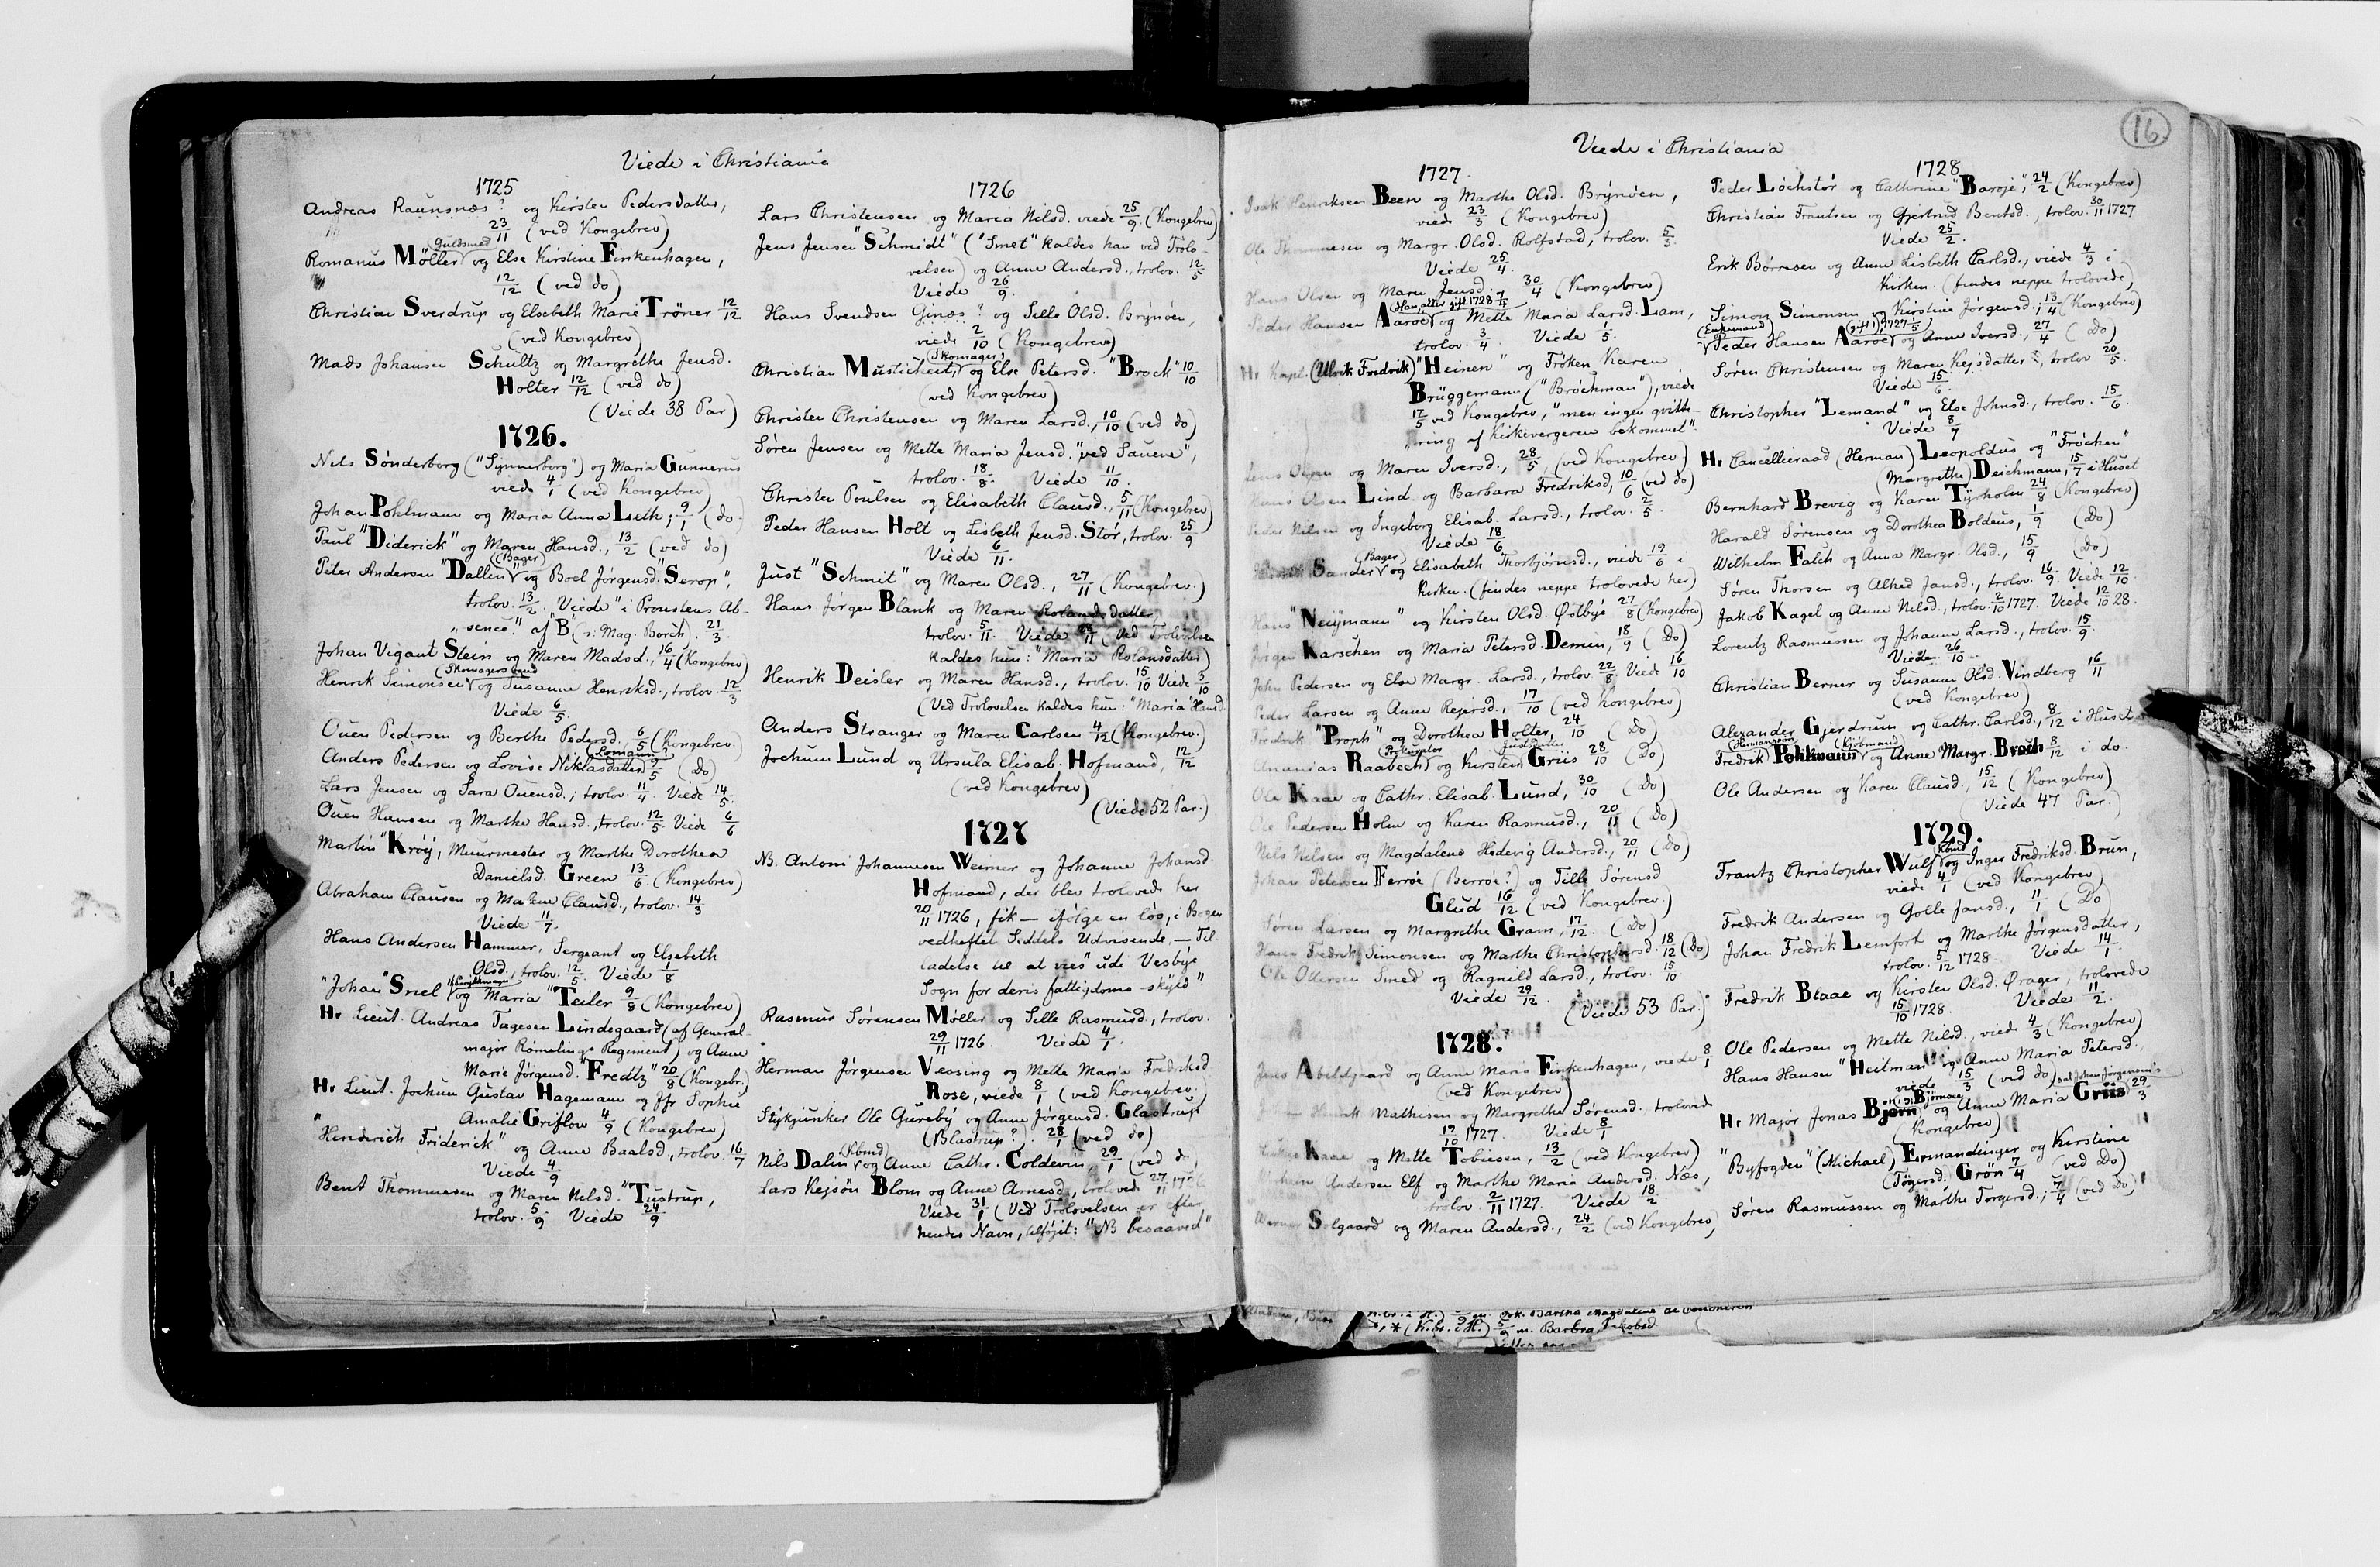 Viede i Christiania
1725
Andreas Raunsnæs? og Kirsten Pedersdatter,
23/11 (ved Kongebrev)
Guldsmed
Romanus Möller og Else Kirstine Finkenhagen,
12/12 (ved do)
Christian Sverdrup og Elsebeth Marie Tröner 12/12
(ved Kongebrev)
Mads Johansen Schultz og Margrethe Jensd.
Holter 12/12 (ved do)
(Viede 38 Par)
1726.
Nils Sønderborg ("Synnerborg") og Maria Gunnerus
viede 4/1 (ved Kongebrev)
Johan Pohlmann og Maria Anna Leth, 9/1 (do.
Paul "Diderick" og Maren Hansd., 13/2 (ved do)
(Bager)
Peter Andersen "Dallin" og Boel Jørgensd. "Serop",
trolov. 13/2. Viede "i Proustens Ab-
sence" af B (ɔ: Mag. Borch). 21/3.
Johan Vigant Stein og Maren Madsd., 16/4 (Kongebrev)
Skomagersvend
Henrik Simonsen og Susanne Henriksd., trolov. 12/3
Viede 6/5.
Ouen Pedersen og Berthe Pedersd. 6/5 (Kongebrev.)
(Lomann?)
Anders Pedersen og Lovise Niklasdatter 9/5 (Do)
Lars Jensen og Sara Ouensd.; trolov. 11/4. Viede 14/5.
Ouen Hansen og Marthe Hansd., trolov. 12/5. Viede 6/6
Martin "Krøÿ, Muurmester og Marthe Dorothea
Danielsd. Green 13/6. (Kongebrev)
Abraham Clausen og Malene Clausd., trolov. 14/3
Viede 11/7.
Hans Andersen Hammer, Sergeant og Elsebeth
Olsd., trolov. 12/5. Viede 1/8
"Johan" Snel og Maria "Teiler 9/8 (Kongebrev)
Hr Lieut. Andreas Tagesen Lindegaard (af General-
major Römelings Regiment) og Anne
Marie Jørgensd. "Fredtz" 20/8 (Kongebr.)
Hr Lieut. Jochum Gustav Hagemann og Jfr Sophie
Amalie Griflow 4/9 (Kongebrev)
"Henderich Friderick" og Anne Baalsd., trolov. 16/7
Viede 4/9
Bent Thommesen og Maren Nilsd. "Tustrup,
trolov. 5/9 Viede 24/9
1726
Lars Christensen og Maria Nilsd. viede 25/9. (Kongebrev)
Jens Jensen "Schmidt" ("Smet" kaldes han ved Trolo-
velsen) og Anne Andersd., trolov. 12/5
Viede 26/9.
Hans Svendsen Ginæs? og Sille Olsd. Brÿnöen,
viede 2/10 (Kongebrev)
(Skomager)
Christian Mustichert, og Else Petersd. "Brock" 10/10
(ved Kongebrev)
Christen Christensen og Maren Larsd., 10/10 (ved do)
Søren Jensen og Mette Maria Jensd. "ved Sauene",
trolov. 18/8. Viede 11/10.
Christen Poulsen og Elisabeth Clausd., 5/11 (Kongebrev)
Peder Hansen Holt og Lisbeth Jensd. Stør, trolov. 25/9
Viede 6/11.
Just "Schmit" og Maren Olsd., 27/11 (Kongebrev.)
Hans Jørgen Blank og Maren Rolandsdatter,
trolov. 5/11. Viede (Ved Trolovelsen
kaldes hun: "Maria Rolansdatter)
Henrik Deisler og Maren Hansd., trolov. 15/10 Viede 3/10
(Ved Trolovelsen kaldes hun: "Maria Hansd.
Anders Stranger og Maren Carlsen 4/12 (Kongebrev.)
Jochum Lund og Ursula Elisab. Hofmand, 12/12
(ved Kongebrev)
(Viede 52 Par.)
1727
NB. Antoni Johannesen Werner og Johanne Johansd.
Hofmand, der blev trolovede her
20/11 1726, fik — ifølge en løs, i Bogen
vedheftet Seddels Udvisende, — Til-
ladelse til at vies "udi Vesbÿe
Sogn for deris fattigdoms skÿld"
Rasmus Sørensen Møller og Sille Rasmusd., trolov.
29/11 1726. Viede 4/1.
Herman Jørgensen Vessing og Mette Maria Fredriksd
Rose, viede 8/1 (ved Kongebrev.
Stykjunker Ole Gurebÿ og Anne Jørgensd. Glastrup
(Blastrup?) 28/1 (ved do)
(Kbmd)
Nils Dalin og Anne Cathr. Coldevin, 29/1 (ved d
Lars Kejsön Blom og Anne Arnesd., trolovede 27/11
Viede 31/1 (Ved Trolovelsen er efter
hendes Navn, tilføjet: "NB besaaved"
16.
Viede i Christiania
1727.
Isak Henriksen Been og Marthe Olsd. Brÿnøen,
viede 23/3 (Kongebrev)
Ole Thommesen og Margr. Olsd. Rolfstad, trolov. 5/3.
Viede 25/4.
Hans Olsen og Maren Jensd. 30/4 (Kongebrev)
(Han atter gift 1728
Peder Hansen Aaroe og Mette Maria Larsd. Lam,
trolov. 3/4. Viede 1/5.
Hr Kapt. (Ulrik Fredrik) "Heinen" og Frøken Karen
Brüggemann ("Brøchman"), viede
12/5 ved Kongebrev, "men ingen qvitte-
ring af Kirkivergeren bekommet".
Jens Ouen og Maren Iversd., 28/5, (ved Kongebrev)
Hans Olsen Lind og Barbara Fredriksd, 10/6 (ved do)
Peder Nilsen og Ingeborg Elisab. Larsd., trolov. 2/5.
Viede 18/6.
(Bager)
Sander og Elisabeth Thorbjørnsd., viede 19/6 i
Kirken. (findes neppe trolovede her)
Hans "Neiÿmann" og Kirsten Olsd. Østbÿe 27/8 (Kongebrev)
Jørgen Karschen og Maria Petersd. Demin, 18/9 (Do)
John Pedersen og Else Margr. Larsd., trolov. 22/8 Viede 16/10
Peder Larsen og Anne Rejersd., 17/10 (ved Kongebrev)
Fredrik "Proph" og Dorothea Holter, 24/10 (Do)
Prokurator
Ananias Raabech og Kirsten Griis 28/10 (Do)
Ole Kaae og Cathr. Elisab. Lund, 30/10 (Do)
Ole Pedersen Holm og Karen Rasmusd., 20/11 (Do)
Nils Nilsen og Magdalene Hedevig Andersd., 20/11 (Do)
Johan Petersen Ferröe (Berröe?) og Tille Sørensd
Glud 16/12 (ved Kongebrev.)
Søren Larsen og Margrethe Gram, 17/12. (Do)
Hans Fredrik Simonsen og Marthe Christophersd. 18/12 (Do)
Ole Ottersen Smed og Ragnild Larsd., trolov. 15/10.
Viede 29/12.
(Viede 53 Par.)
1728.
Jens Abildgaard og Anne Maria Finkenhagen, viede 8/1
(ved Kongebrev)
Henrik Mathisen og Margrethe Sørensd. trolovede
19/10 1727. Viede 8/1
Kaae og Mette Tobiesen, 13/2 (ved Kongebrev)
Andersen Elf og Marthe Maria Andersd. Næs,
trolov. 2/11 1727. Viede 18/2
Werner Solgaard og Maren Andersd., 24/2 (ved Kongebrev)
1728
Peder Løchstør og Cathrine "Baroje", 24/2 (Kongebrev)
Christian Frantsen og Gjertrud Bentsd., trolov. 30/11 1727
Viede 25/2.
Erik Børresen og Anne Lisbeth Carlsd., viede 4/3 i
Kirken. (findes neppe trolovede)
Simon Simonsen og Kirstine Jørgensd., 13/4 (Kongebrev)
(Enkemand) (gift 1) 1727 1/5)
Peder Hansen Aaroe og Anne Iversd., 27/4 (Do)
Søren Christensen og Maren Kejsdatter, trolov 20/5.
Viede 15/6.
Christopher "Lemand" og Else Johnsd., trolov. 15/6.
Viede 8/7
Hr Cancellieraad (Herman) Leopoldus og "Frøchen"
(Margrethe) Deichmann, 15/7 i Huset
Bernhard Brevig og Karen Tÿrholm 24/8 (Kongebrev)
Harald Sørensen og Dorothea Boldeus, 1/9 (Do)
Wilhelm Falch og Anna Margr. Olsd., 15/9 (Do)
Søren Thorsen og Alhed Jansd., trolov. 16/9. Viede 12/10.
Jakob Kagel og Anne Nilsd., trolov. 2/10 1727. Viede 12/10 28.
Lorentz Rasmussen og Johanne Larsd., trolov. 15/9.
Viede 26/10.
Christian Berner og Susanne Olsd. Vindberg 16/11
(ved Kongebrev)
Alexander Gjerdrum og Cathr. Carlsd., 8/12 i Huset
(Kjøbmand)
Fredrik Pohlmann og Anne Margr. Broch 8/12 i do.
Ole Andersen og Karen Clausd., 15/12 (Kongebrev)
(Viede 47 Par.)
1729.
Kbmd
Frantz Christopher Wulf og Inger Fredriksd. Brun,
viede 4/1 (ved Kongebrev)
Fredrik Andersen og Golle Jansd., 11/1 (Do)
Johan Fredrik Lemfort og Marthe Jørgensdatter,
trolov. 5/12 1728 Viede 14/1.
Fredrik Blaae og Kirsten Olsd. Ørager, trolovede
15/10 1728. Viede 11/2.
Ole Pedersen og Mette Nilsd., viede 4/3 (Kongebrev)
Hans Hansen "Heitman" og Anne Maria Petersd.,
viede 15/3 (ved do)
Hr Major Jonas Bjørn og Anne Maria Griis 29/3
(Kongebrev)
"Byfogden" (Michael) Ermandinger og Kirstine
(Tøgersd.) Grøn 7/4 (ved Do)
Søren Rasmussen og Marthe Torgersd., 7/4 (ved Do)